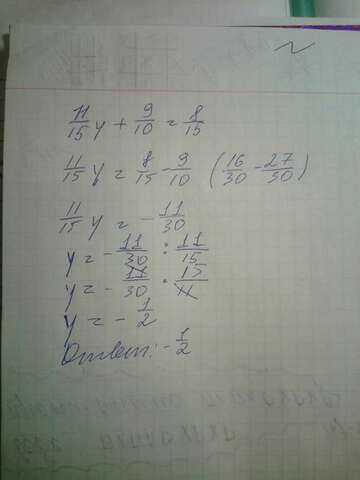 11/15 y + 9/10 = 8/15
11/15 y = 8/15 - 9/10 (16/30 - 27/30)
11/15 y = - 11/30
y = - 11/30 : 11/15
y = - 11/30 · 15/11
y = - 1/2
Ответ: - 1/2